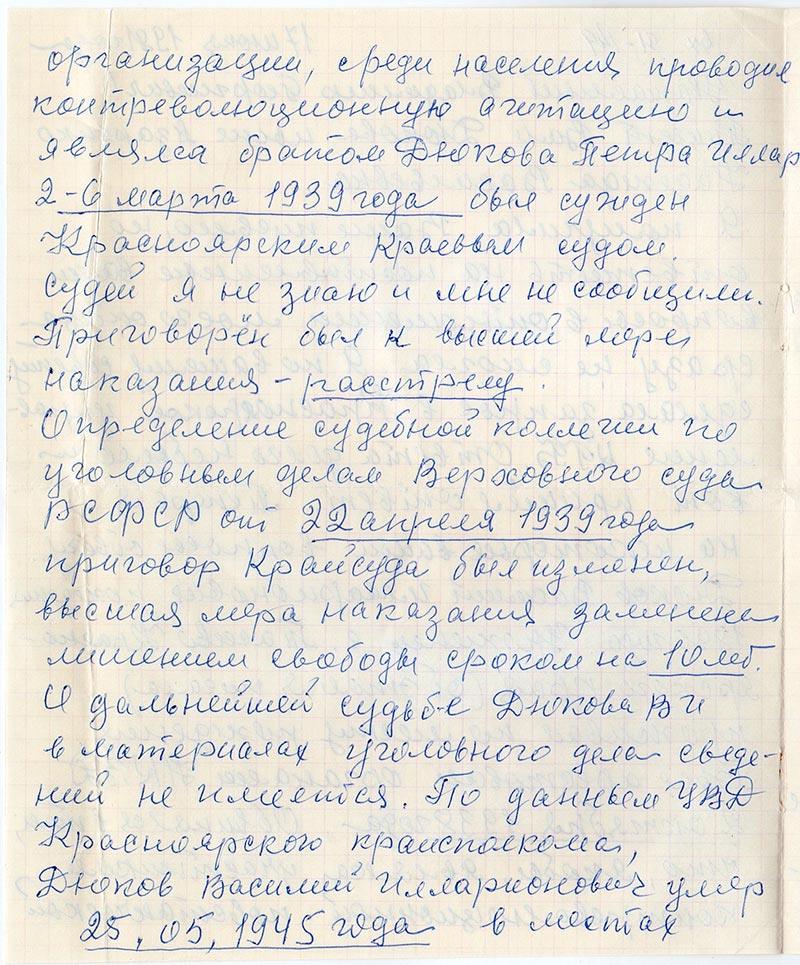 организации, среди населения проводил
контреволюционную агитацию и
являлся братом Дюкова Петра Иллар
2-6 марта 1939 года был сужден
Красноярским Краевым судом.
судей я не знаю и мне не сообщили.
Приговорён был к высшей мере
наказания - расстрелу.
Определение судебной коллегии по
уголовным делам Верховного суда
РСФСР от 22 апреля 1939 года
приговор Крайсуда был изменен,
высшая мера наказания заменена
лишением свободы сроком на 10 лет.
О дальнейшей судьбе Дюкова В И
в материалах уголовного дела сведе-
ний не имеется. По данным УВД
Красноярского крайисполкома,
Дюков Василий Илларионович умер
25.05.1945 года в местах